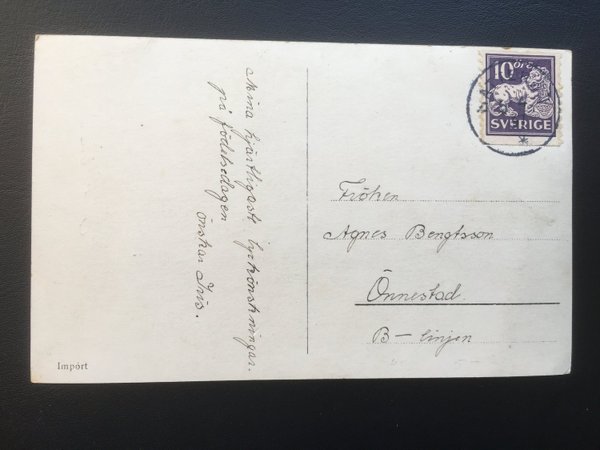 Mina hjärtligast lyckönskningar
på födelsedagen
önskar Iris.
10 öre
SVERIGE
Fröken
Agnes Bengtsson
Önnestad
B-linjen
Import